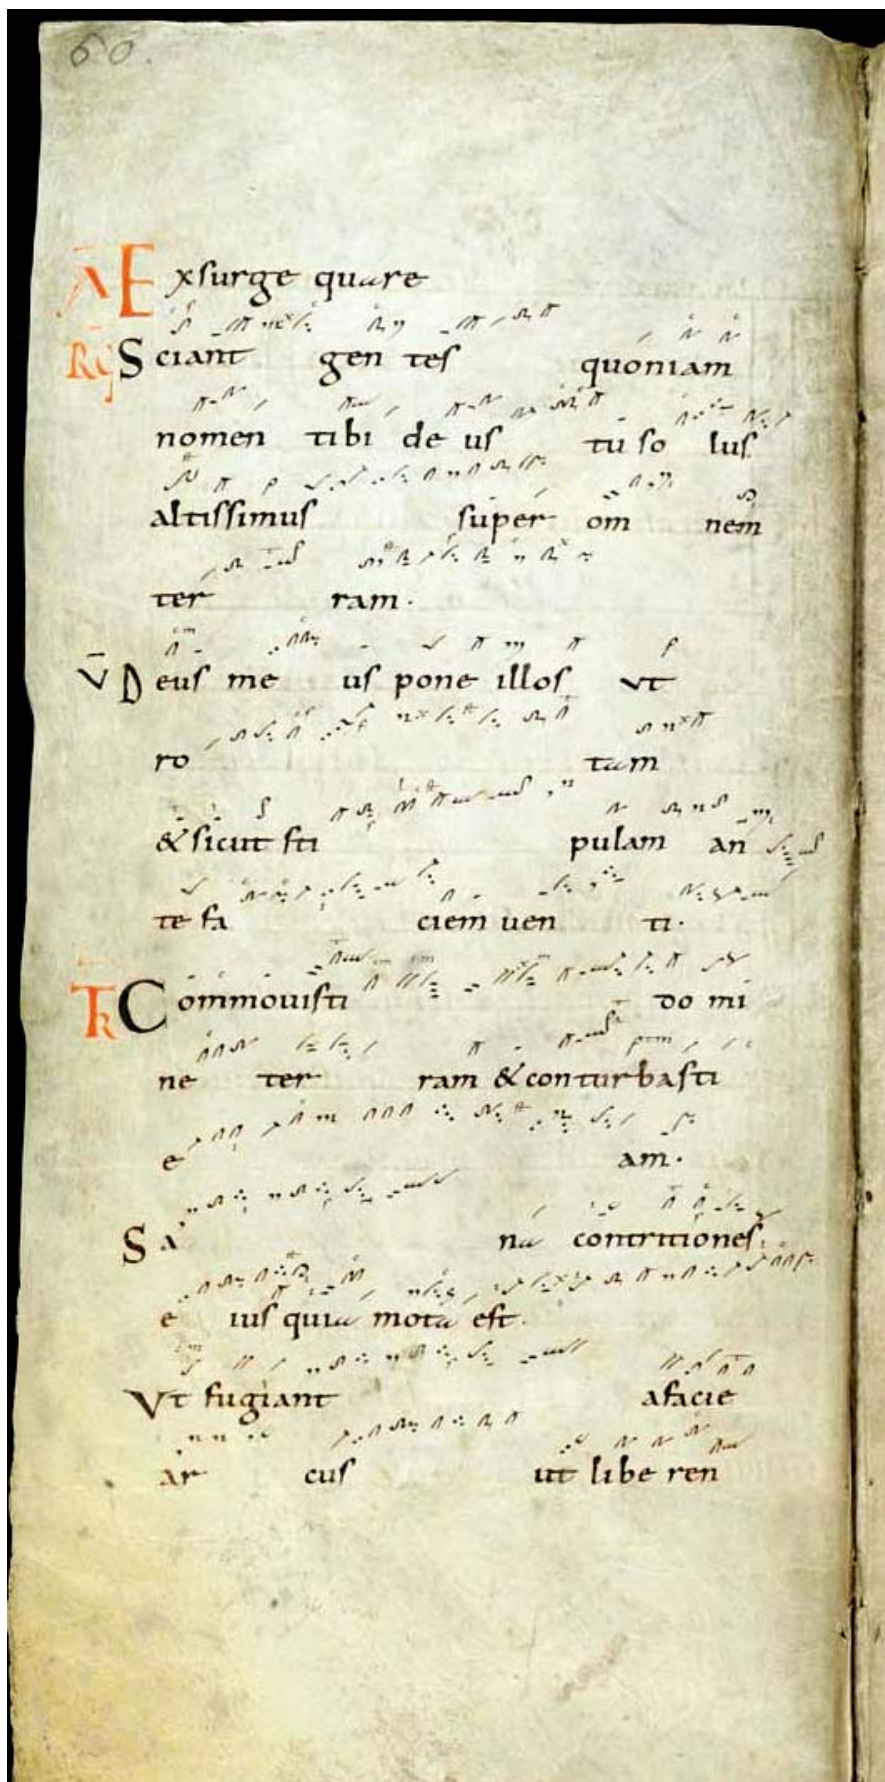 60.
A Exsurge quare
RG Sciant gen tes quoniam
nomen tibi de us tu so lus
altissimus super om nem
ter ram.
V Deus me us pone illos vt
ro tam
& sicut sti pulam an
te fa ciem uen ti.
TR Commouisti do mi
ne ter ram & conturbasti
e am.
Sa na contritiones
e ius quia mota est.
Vt fugiant afacie
ar cus ut libe ren